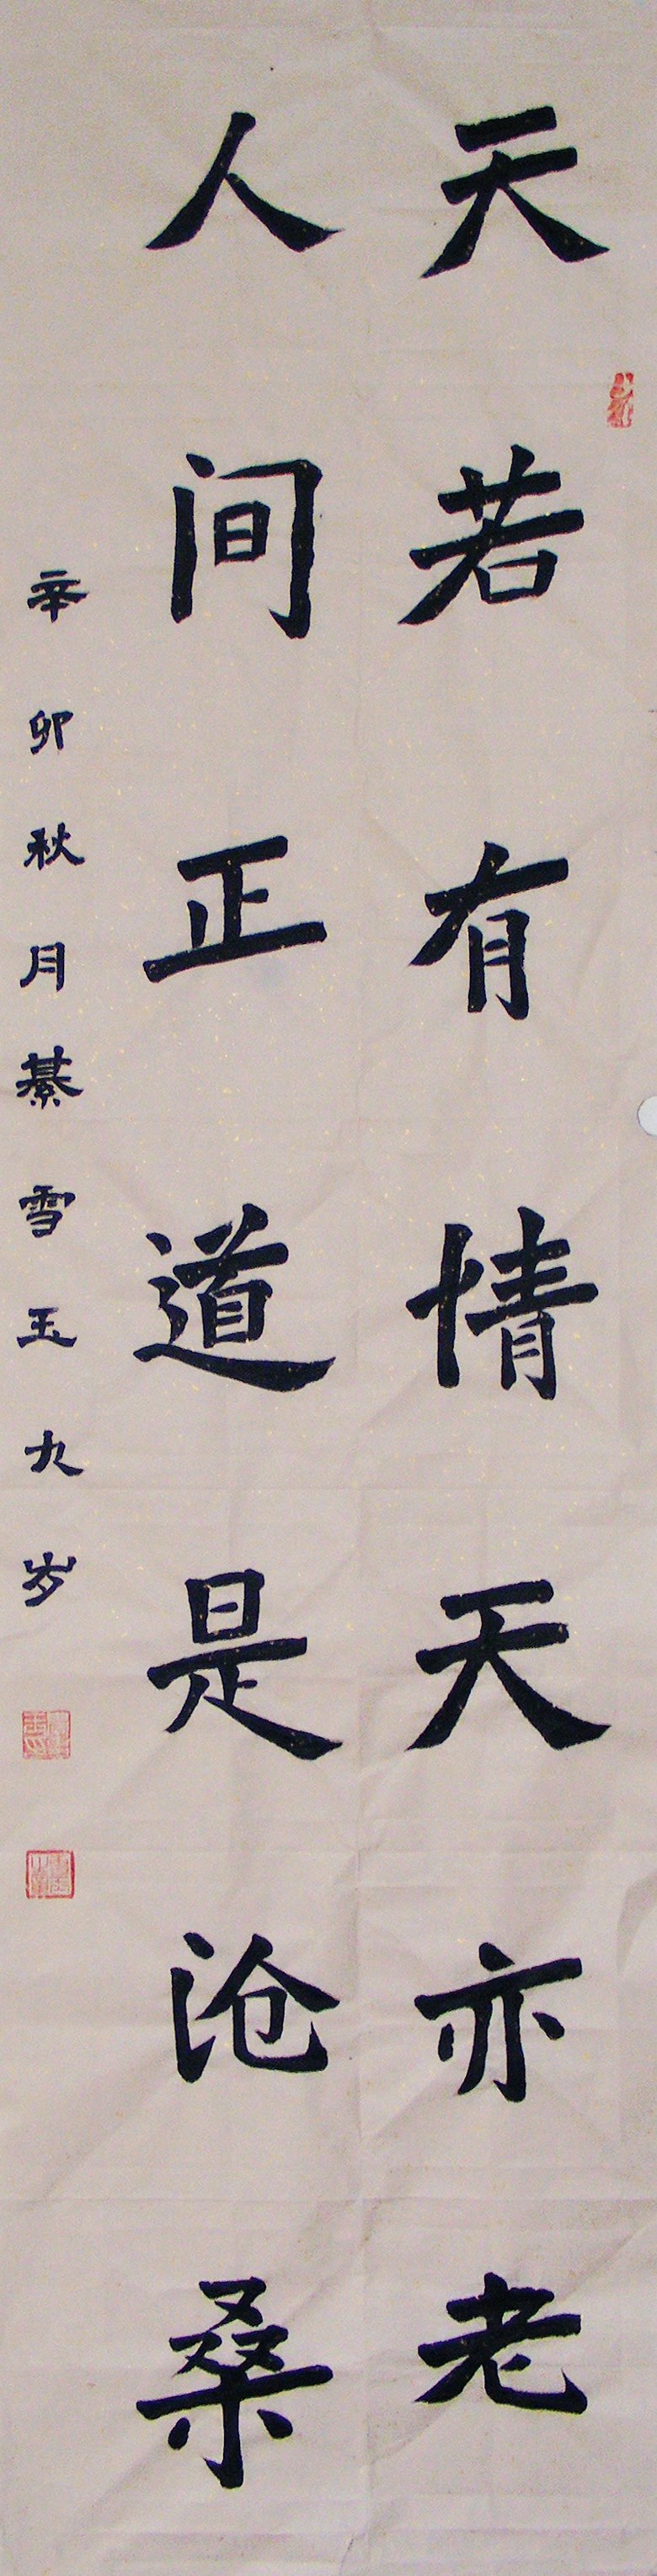 天若有情天亦老
人间正道是沧桑
辛卯秋月綦雪玉九岁